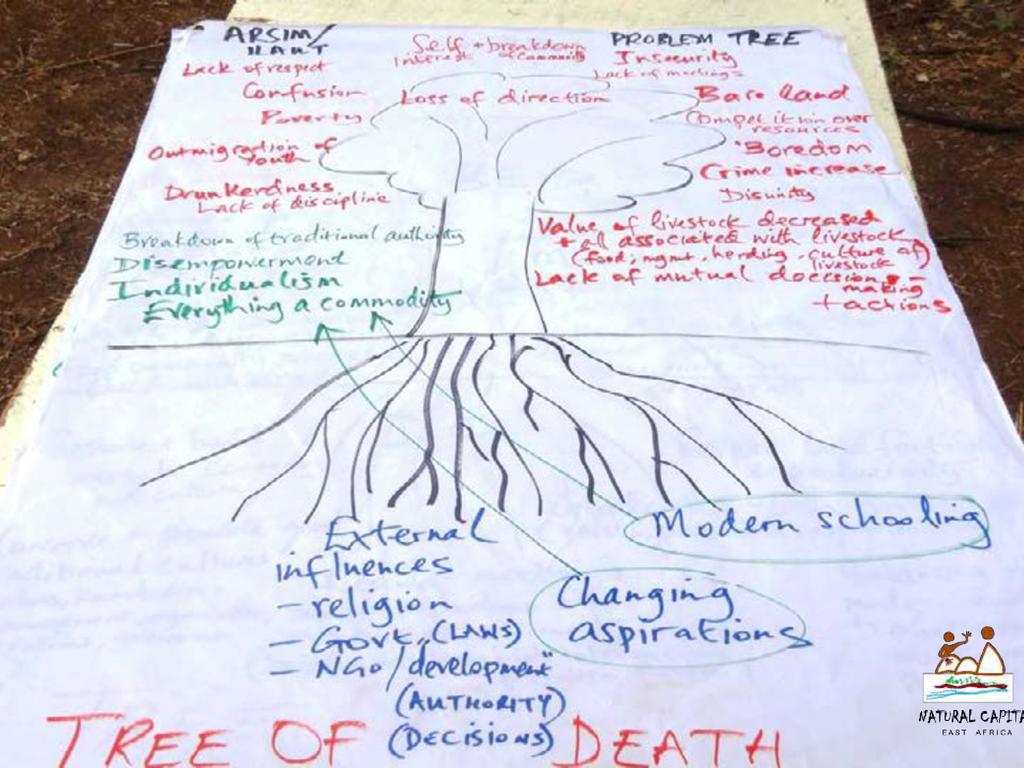 ARSIM/
PROBLEM TREE
Self + breakdown
interest of community
Insecurity
Lack of meetings
Lack of respect
Confusion
Loss of direction
Bare land
Poverty
Competition over
resources
Outmigration of
youth
Boredom
Crime increase
Drunkerdness
Lack of discipline
Disunity
Breakdown of traditional authority
Disempowerment
Individualism
Everything a commodity
Value of livestock decreased
+ all associated with livestock
(food, mgmt, herding, culture of)
livestock
Lack of mutual decision-
making
+ actions
External
influences
- religion
- Govt. (LAWS)
- NGO/"development"
(AUTHORITY)
(DECISIONS)
Modern schooling
Changing
aspirations
TREE OF DEATH
NATURAL CAPITA
EAST AFRICA